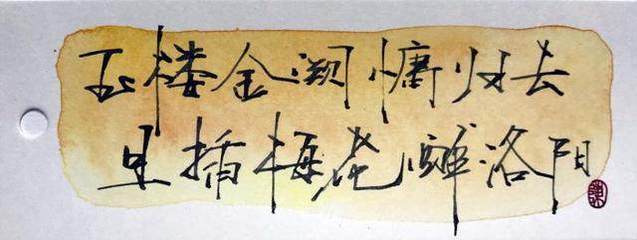 玉楼金阙慵归去
且插梅花醉洛阳